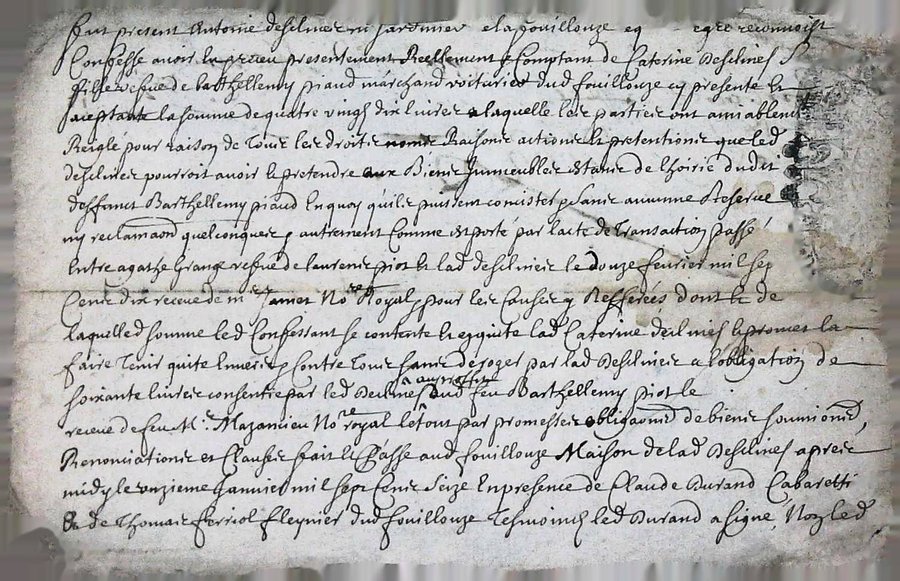 fut present Antoine deshmes jardinier a la fouillouze ecgre reconnoist
Confesse avoir presentement Reellement Comptant de Caterine Deshmes
fille vefue de barthellemy piaud marchand voiturier dud fouillouze cy presente et
acceptante la somme de quatre vingt dix livres a laquelle les parties ont amiablem
Reigle pour raison de tous les droits noms Raisons actions et pretentions que led
pourroit avoir et pretendre aux Biens Immeubles de lhoirie dudit
deffunct Barthellemy piaud En quoy quils puissent concister sans aucunne Reserve
ny reclamaon quelconques autrement Comme est porté par lacte de Transaction passé
Entre agathe Grange vefue de laurens piot et lad le douze fevrier mil sep
Cents dix receue de mr James Nore Royal pour les Causes y Refferées dont et de
laquelle somme led Confessant se contente et quitte lad Caterine et promet la
faire Tenir quitte Envers Contre Tous sans deroger par lad a lobligation de
soixante livres consentie par led au proffit dud feu Barthellemy piot le
receue de feu Me Mazancieu Nore royal le tout par promesses obligaons de biens soumions,
Renonciations et Clauses fait et Passé aud fouillouze Maison de lad apres
midy le unzieme Janvier mil sept Cents seize En presence de Claude Durand Cabaretti
& de Thomas ferriol fleynier dud fouillouze Tesmoins led Durand a signe, Non led